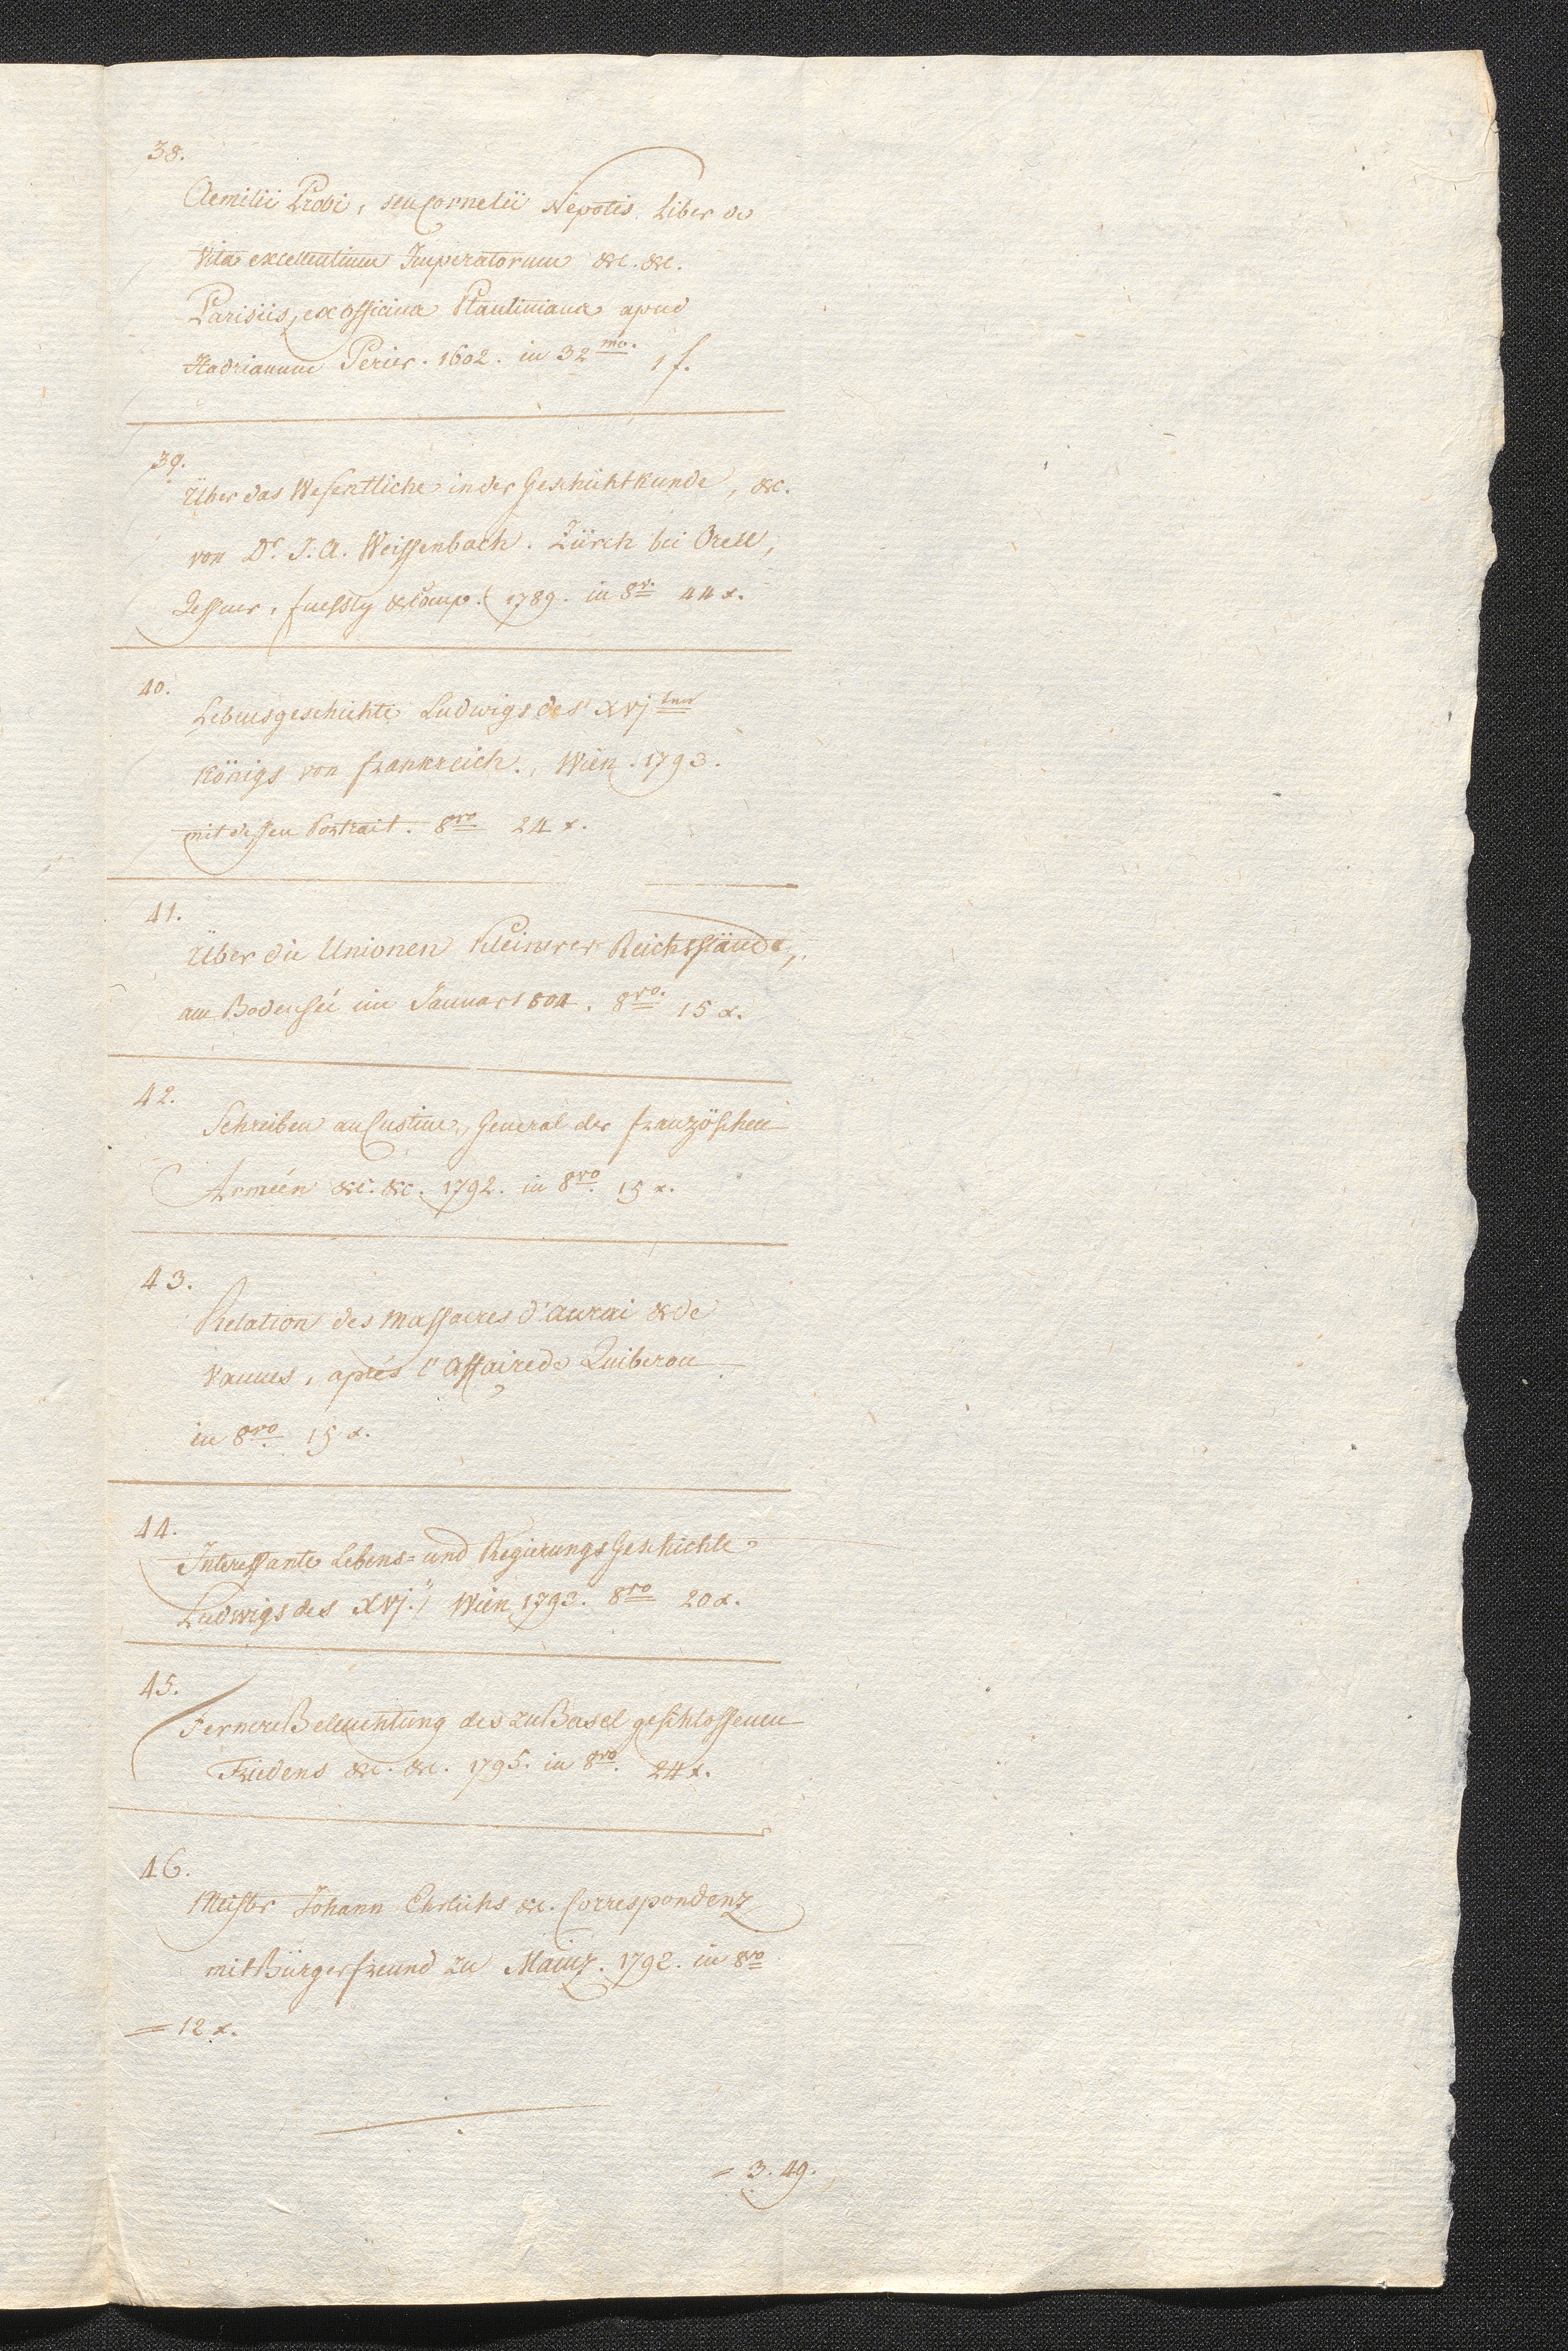 38.
Aemilii Probi, seu Cornelii Nepotis Liber de
Vita excellentium Imperatorum &c. &c.
Parisiis, ex officina Plantiniana apud
Hadrianum Perier. 1602. in 32mo. 1 f.
39.
Über das Wesentliche in der Geschichtkunde, &c.
von Dr. J. A. Weissenbach. Zürch bei Orell,
Gessner, fuessly & Comp. 1789. in 8vo. 44 x.
40.
Lebensgeschichte Ludwigs des XVjten
Königs von frankreich., Wien. 1793.
mit dessen Portrait. 8vo 24 x.
41.
Über die Unionen kleinerer Reichsstände,
am Bodensee im Januar 1804. 8vo. 15 x.
42.
Schreiben an Custine, General der französchen
Armeén &c. &c. 1792. in 8vo. 15 x.
43.
Relation des massacres d'aurai & de
Vannes, aprés l'affaire de Quiberon
in 8vo. 15 x.
44.
Interessante Lebens= und Regierungs Geschichte
Ludwigs des XVj. Wien 1793. 8vo 20 x.
45.
Fernere Beleuchtung des zu Basel geschlossenen
Friedens &c. &c. 1795. in 8vo. 24 x.
46.
Meister Johann Ehrlichs &c. Correspondenz
mit Bürgerfreund zu Mainz. 1792. in 8vo
= 12 x.
= 3. 49.